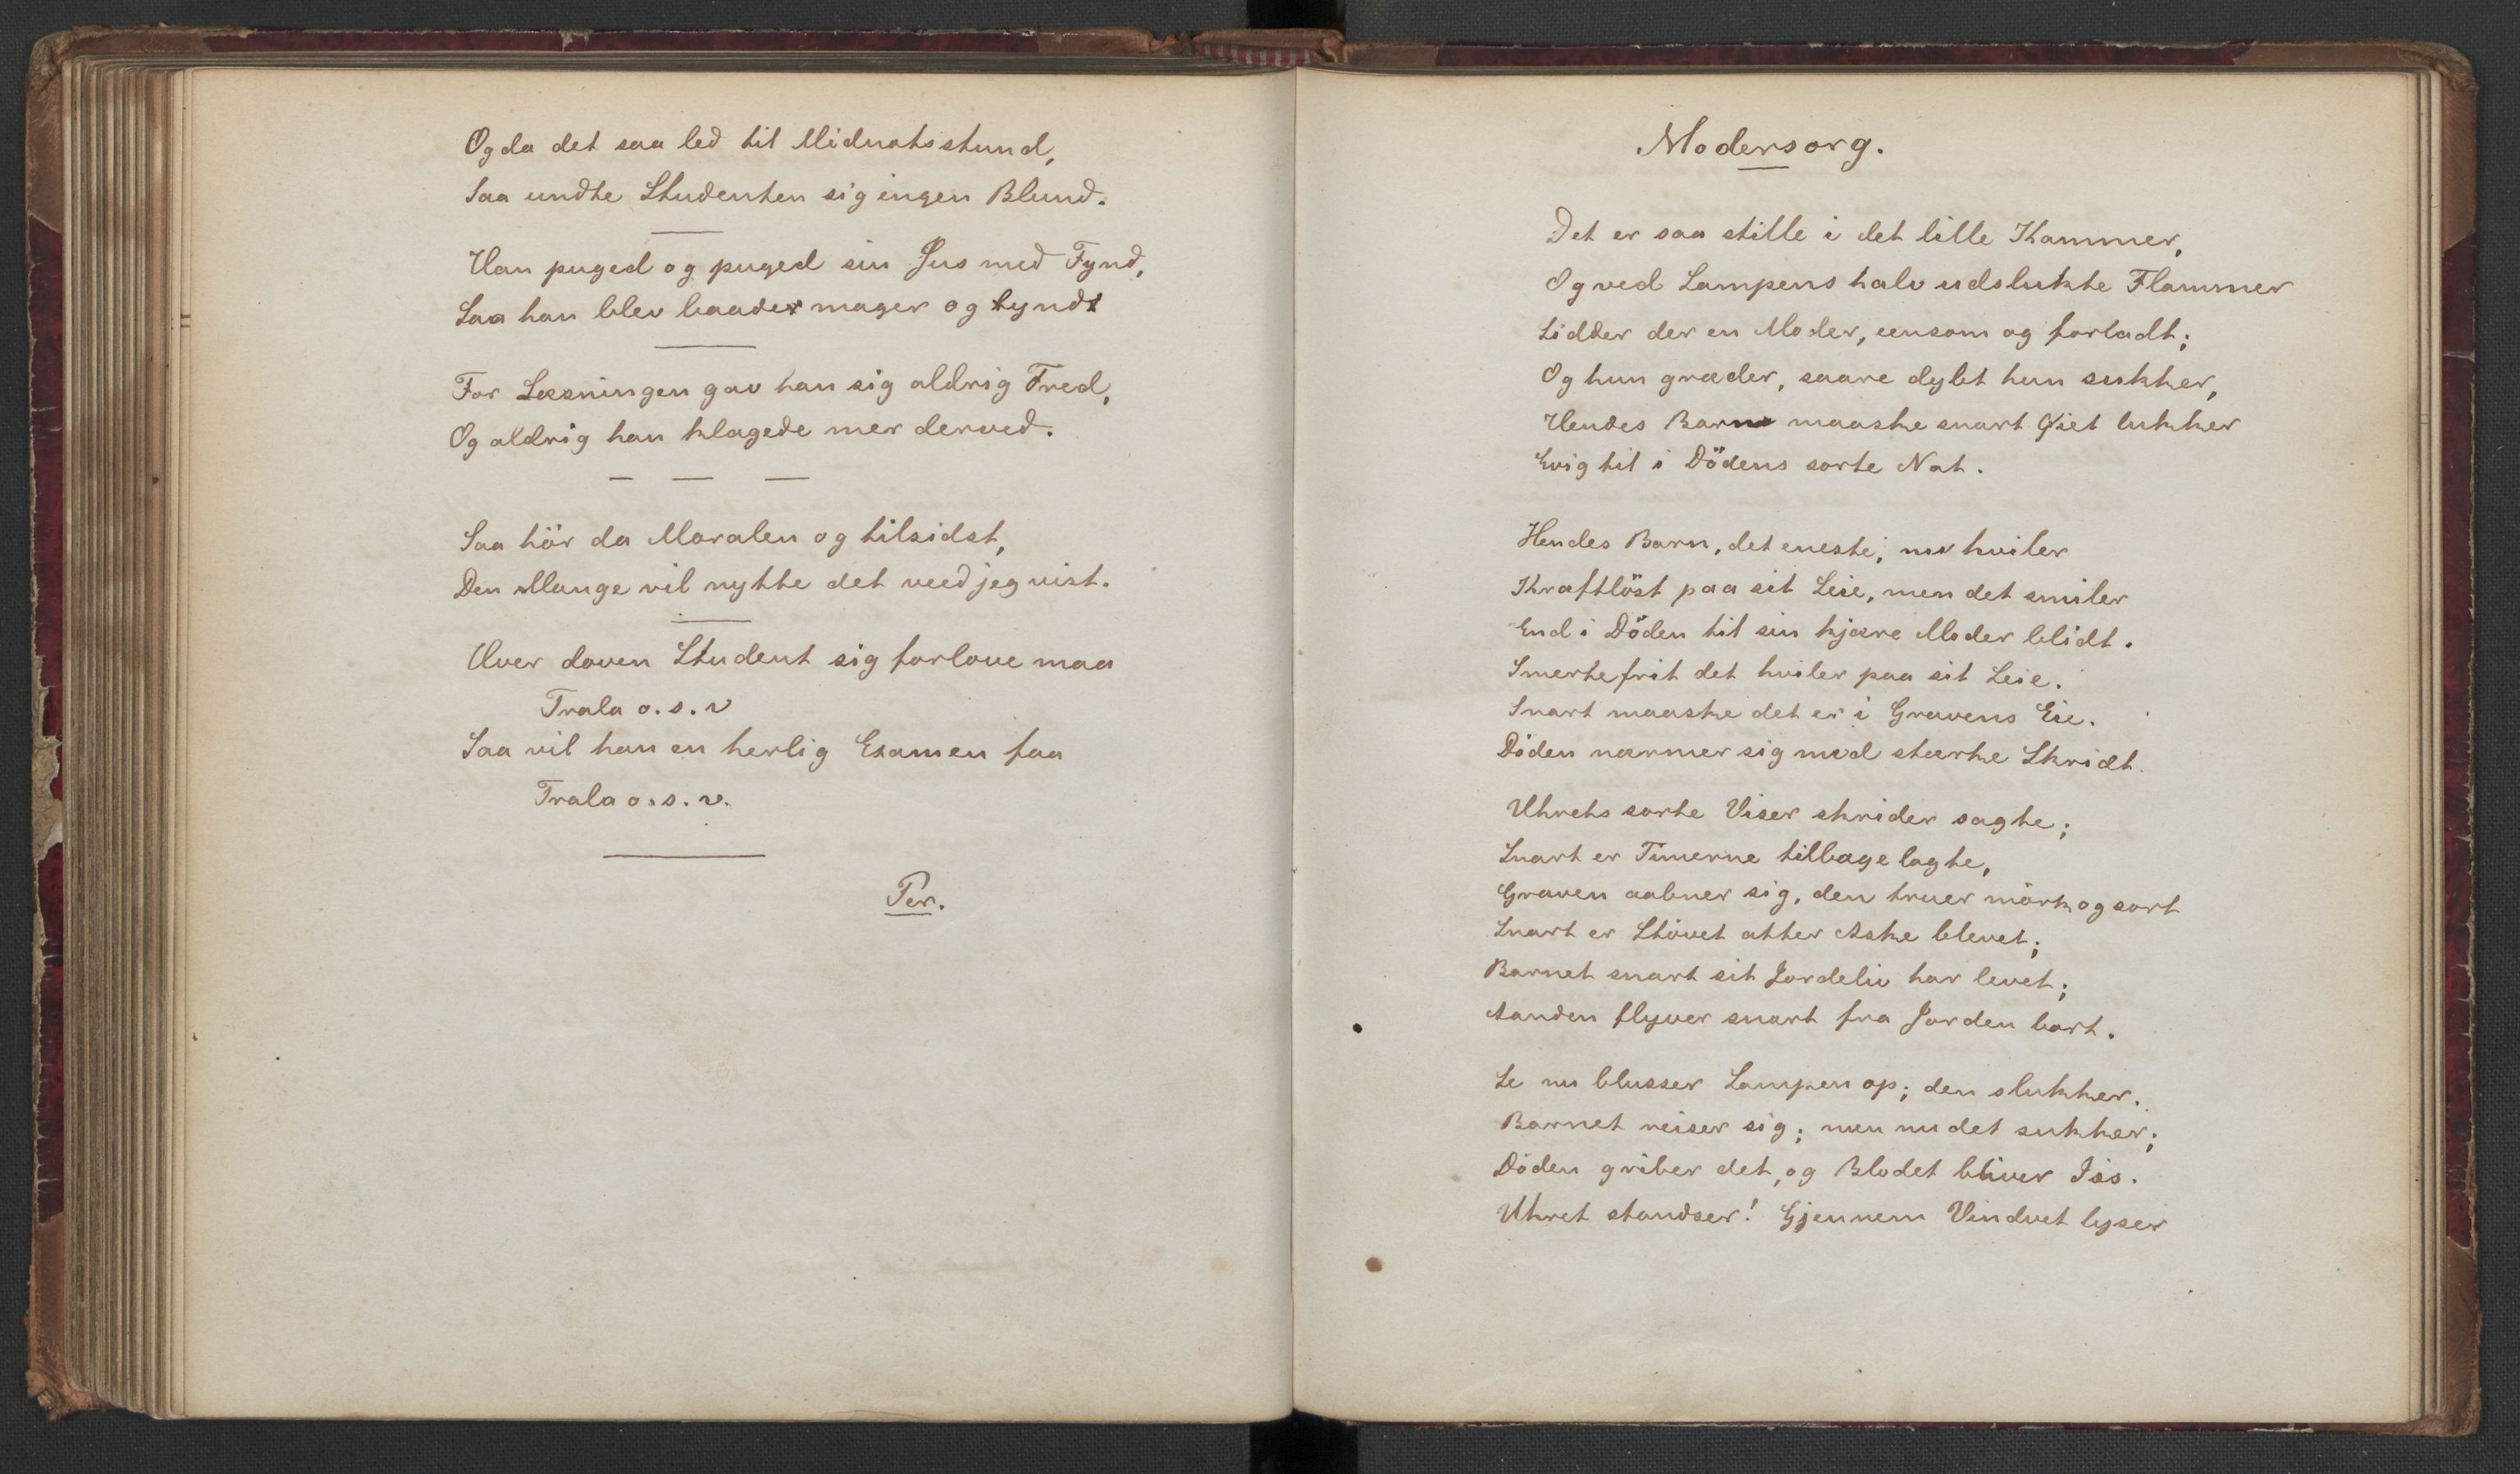 Og da det saa led til Midnatsstund,
Saa undte Studenten sig ingen Blund.
Han puged og puged sin Jus med Fynd,
Saa han blev baade mager og tynd
For Læsningen gav han sig aldrig Fred,
Og aldrig han klagede mer derved.
Saa hör da Moralen og tilsidst,
Den Mange vil nytte det veed jeg vist.
Hver doven Student sig forlove maa
Trala o. s. v
Saa vil han en herlig Examen faa
Trala o. s. v.
Per.
Modersorg.
Det er saa stille i det lille Kammer,
Og ved Lampens halv udslukte Flammer
Sidder der en Moder, eensom og forladt;
Og hun græder, saare dybt hun sukker,
Hendes Barn maaske snart Øiet lukker
Evig til i Dödens sorte Nat.
Hendes Barn, det eneste, nu hviler
Kraftlöst paa sit Leie, men det smiler
End i Döden til sin kjære Moder blidt.
Smertefrit det hviler paa sit Leie.
Snart maaske det er i Gravens Eie.
Döden nærmer sig med stærke Skridt.
Uhrets sorte Viser skrider sagte;
Snart er Timerne tilbagelagte,
Graven aabner sig, den truer mörk og sort
Snart er Stövet atter Aske blevet;
Barnet snart sit Jordeliv har levet;
Aanden flyver snart fra Jorden bort.
Se nu blusser Lampen op; den slukker.
Barnet reiser sig; men nu det sukker;
Döden griber det, og Blodet bliver Iis.
Uhret standser! Gjennem Vinduet lyser